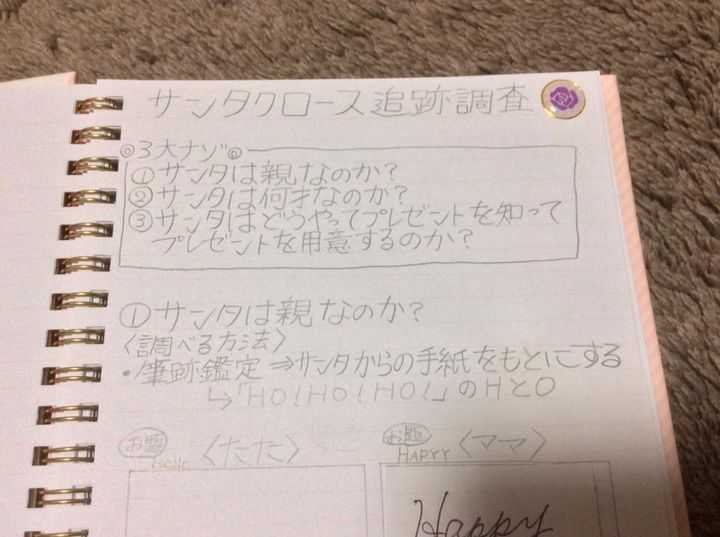 サンタクロース追跡調査
◎3大ナゾ◎
①サンタは親なのか?
②サンタは何才なのか?
③サンタはどうやってプレゼントを知って
プレゼントを用意するのか?
①サンタは親なのか?
〈調べる方法〉
・筆跡鑑定⇒サンタからの手紙をもとにする
↳「HO!HO!HO!」のHとO
お題 Hello 〈たた〉
お題 HAPYY 〈ママ〉
Happy